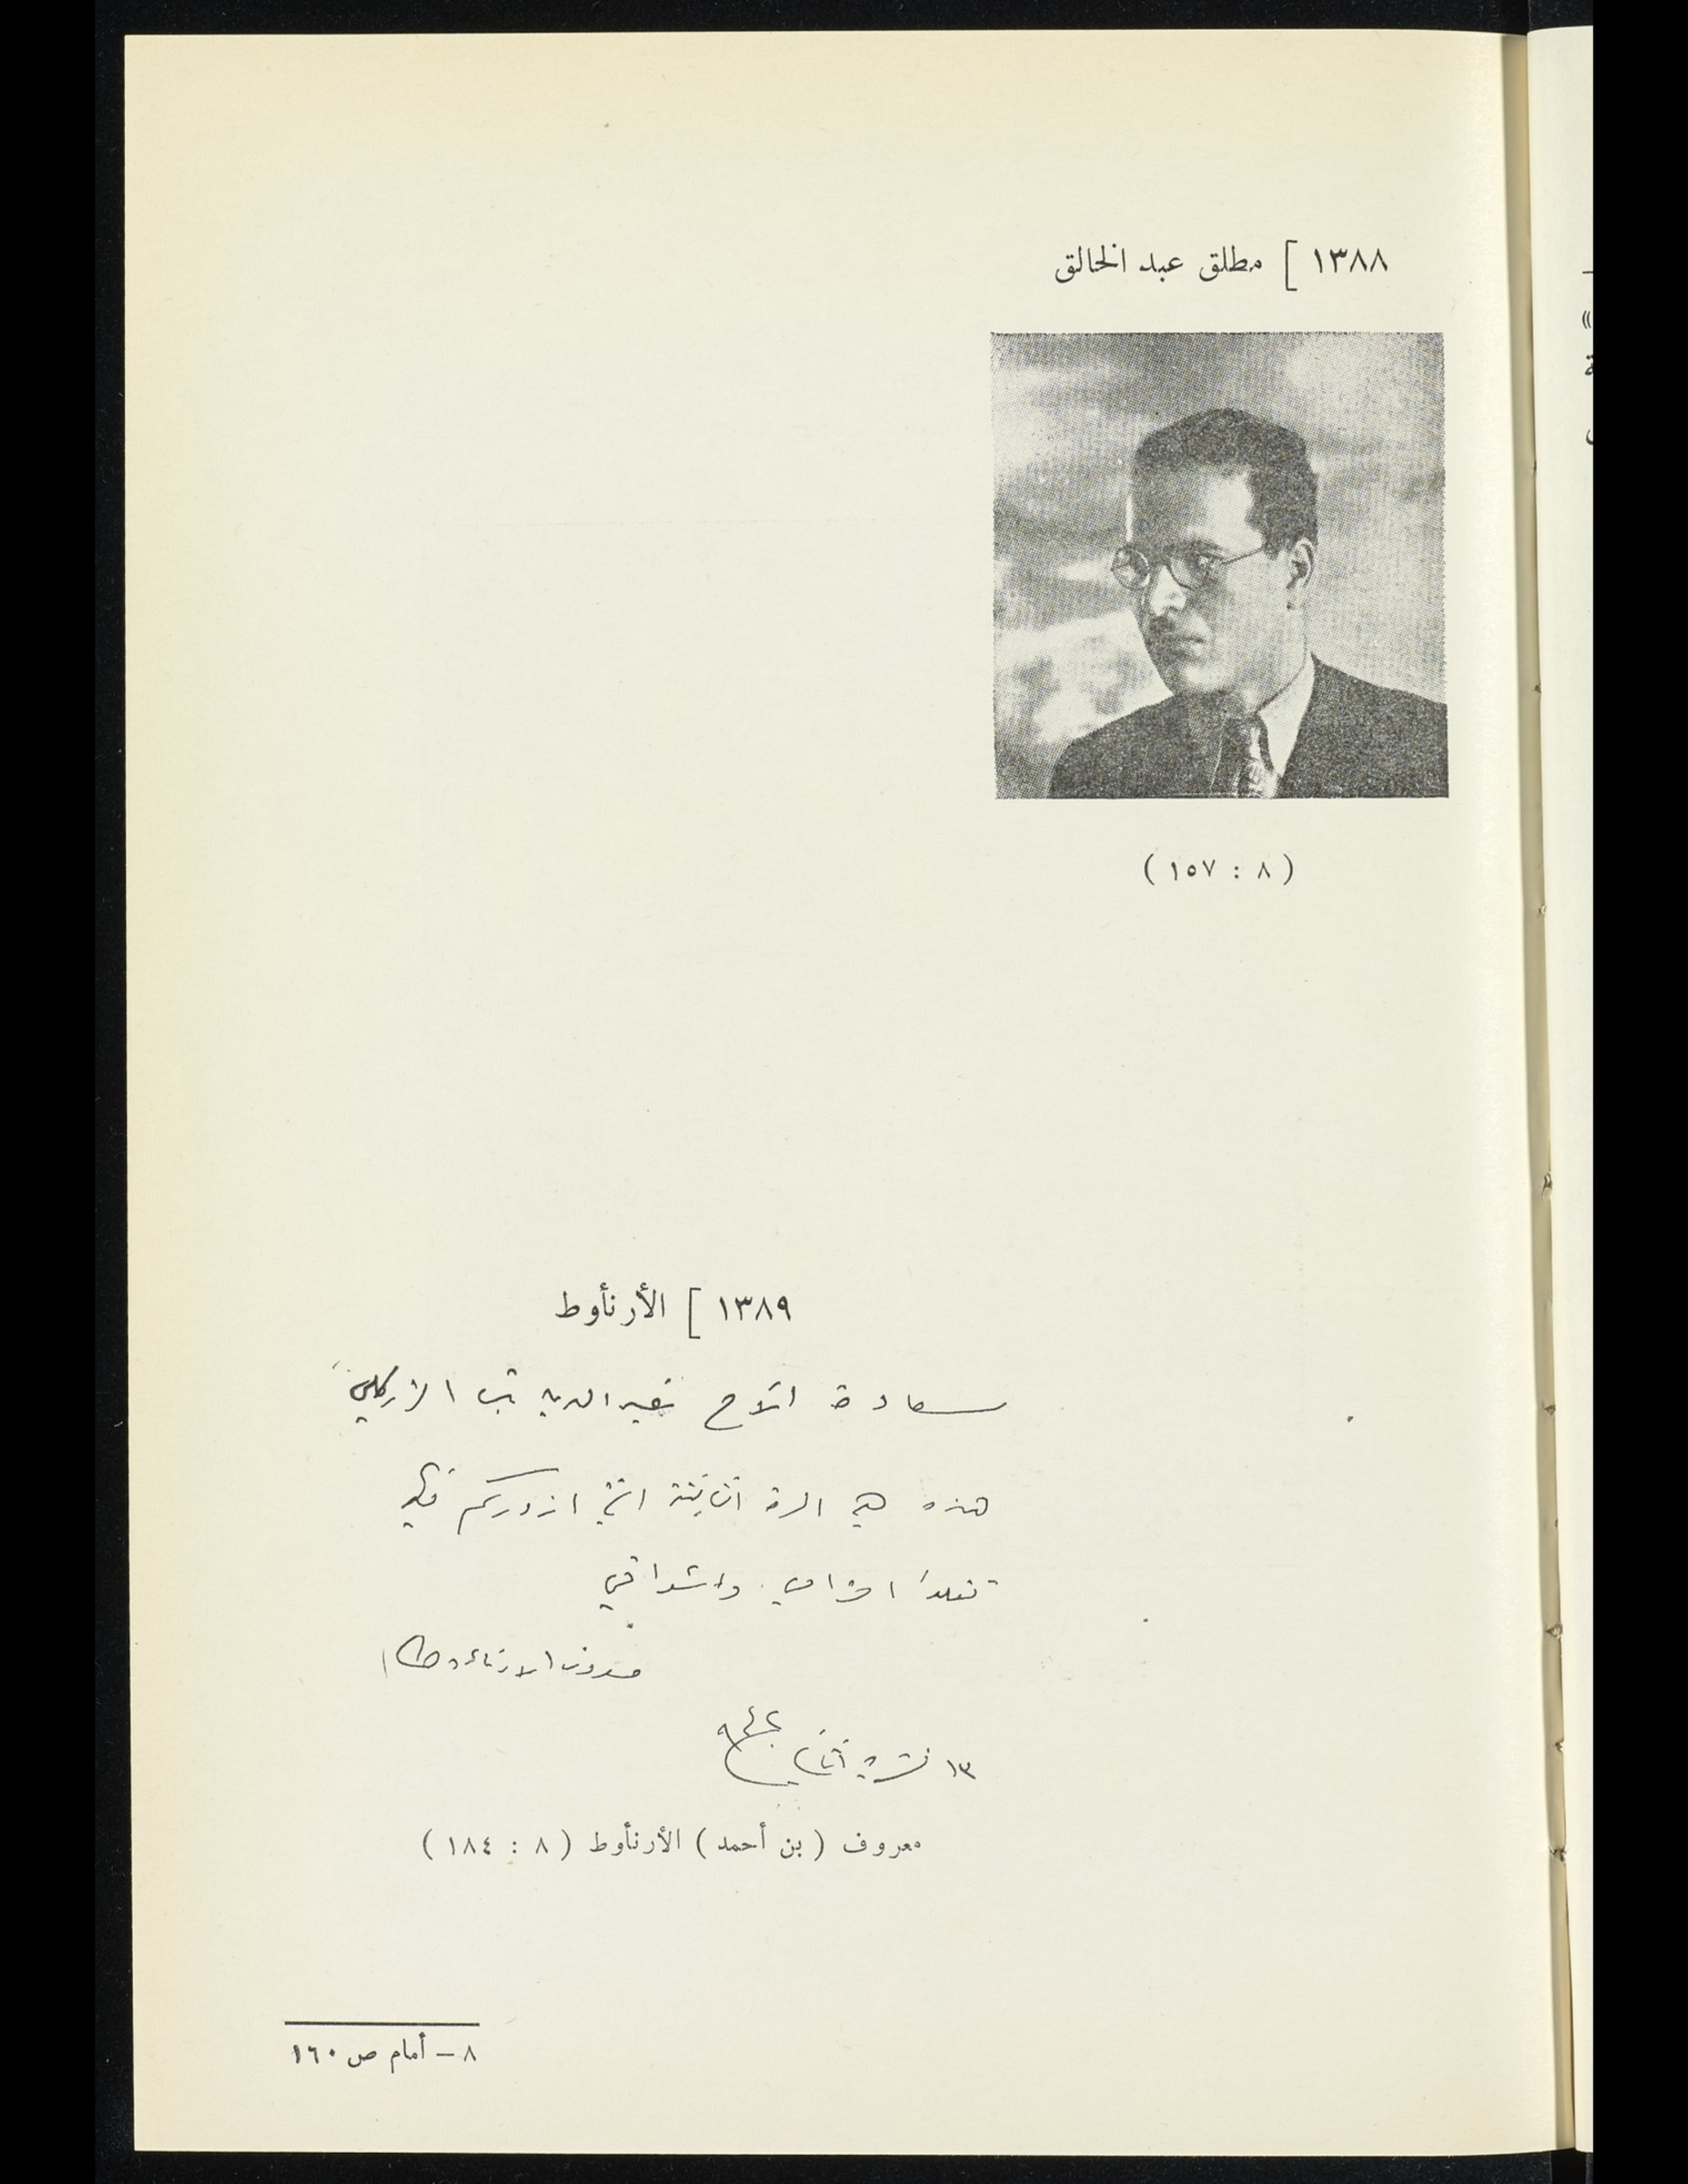 ١٣٨٨ ] مطلق عبد الخالق
( ٨ : ١٥٧ )
١٣٨٩ ] الأرنأوط
سعادة الاخ خير الدين بك الزركلي
هذه هي المرة الثانية التي ازوركم فيها
احترامي واشواقي
معروف الارناءوط
١٣ تشرين الثاني
معروف ( بن أحمد ) الأرنأوط ( ٨ : ١٨٤ )
٨ – أمام ص ١٦٠